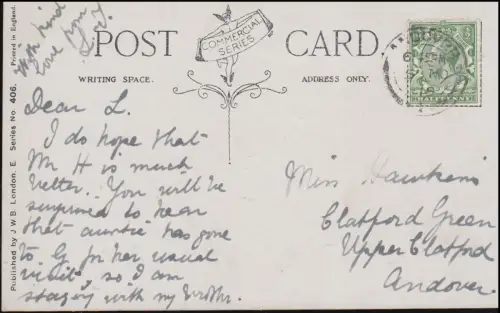 With kind
love from
L. J.
POST CARD
COMMERCIAL
SERIES
WRITING SPACE.
ADDRESS ONLY.
Printed in England.
Published by J W B London, E. Series No. 406.
HALFPENNY
Dear L.
I do hope that
Mr H is much
better. You will be
surprised to hear
that auntie has gone
to G for her usual
visit, so I am
staying with my brother.
Miss Hawkins
Clatford Green
Upper Clatford
Andover.